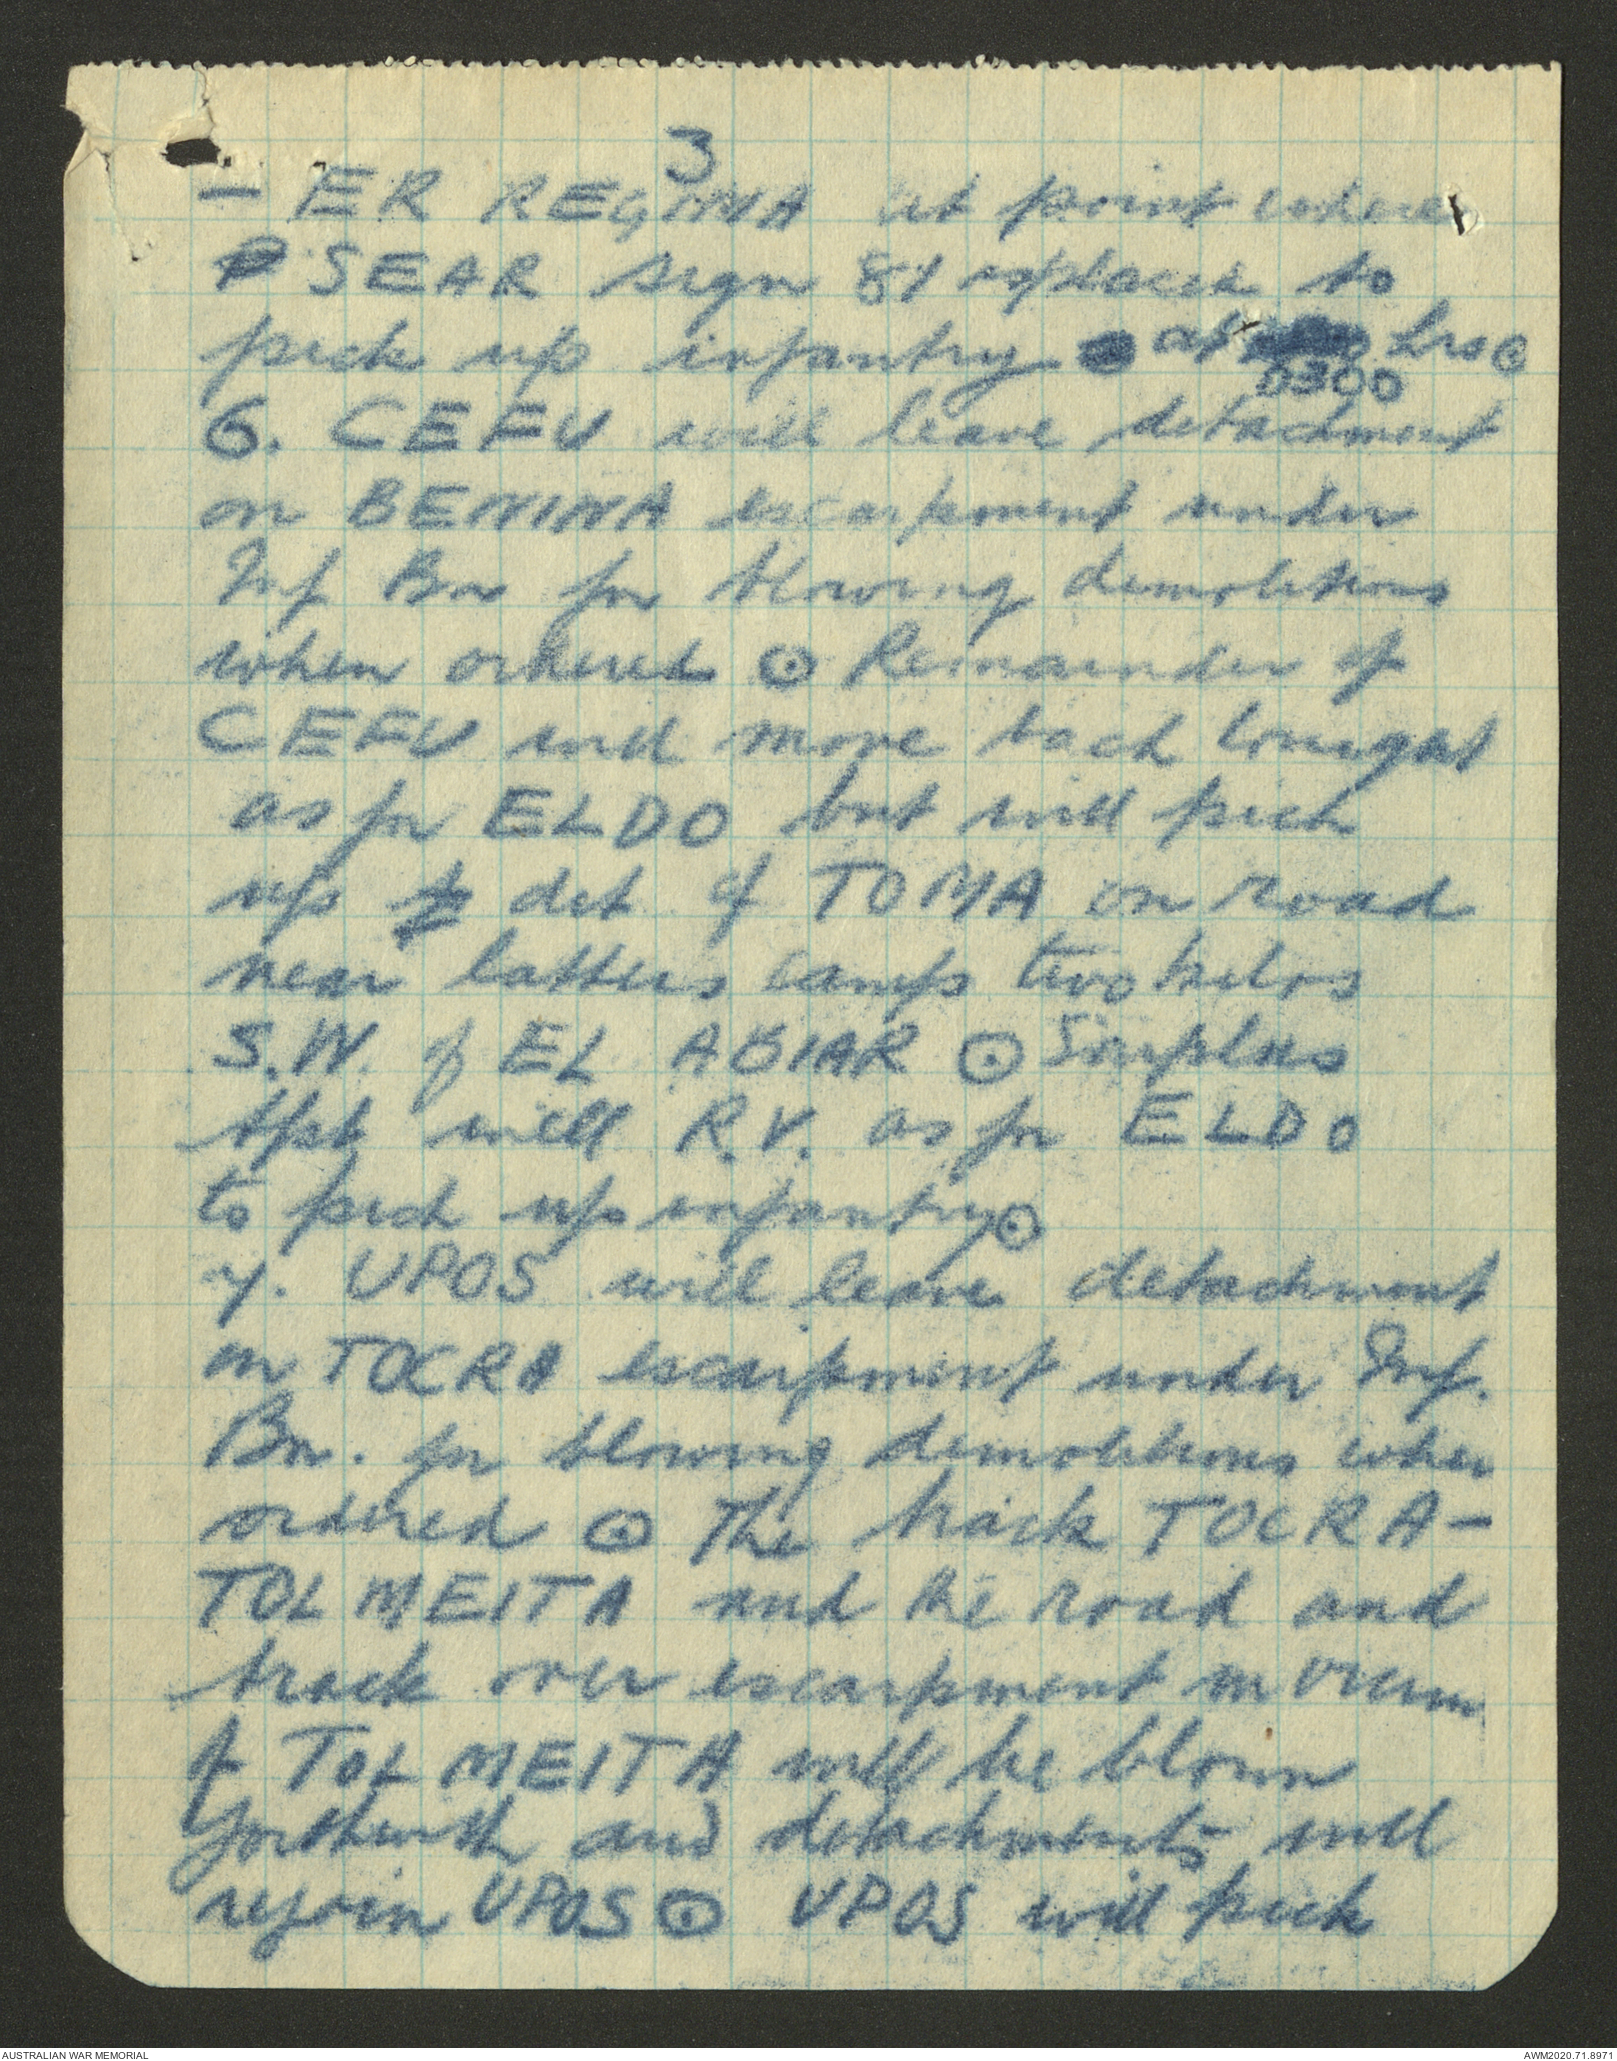 3
- ER REGIMA at point where
SEAR sign 81 is placed to
pick up infantry at hrs ⊙
0300
6. CEFU will leave detachment
on BENINA escarpment under
Inf Bn for blowing demolitions
when ordered ⊙ Remainder of
CEFU will move back tonight
as for ELDO but will pick
up det of TOMA on road
near latters camp two kilos
S.W. of EL ABIAR ⊙ Surplus
tpt will R.V. as for ELDO
to pick up infantry ⊙
7. UPOS will leave detachment
on TOCRA escarpment under Inf.
Bn. for blowing demolitions when
ordered ⊙ The track TOCRA -
TOLMEITA and the road and
track over escarpment in
of TOLMEITA will be blown
forthwith and detachments will
rejoin UPOS ⊙ UPOS will pick
AUSTRALIAN WAR MEMORIAL
AWM2020.71.8971